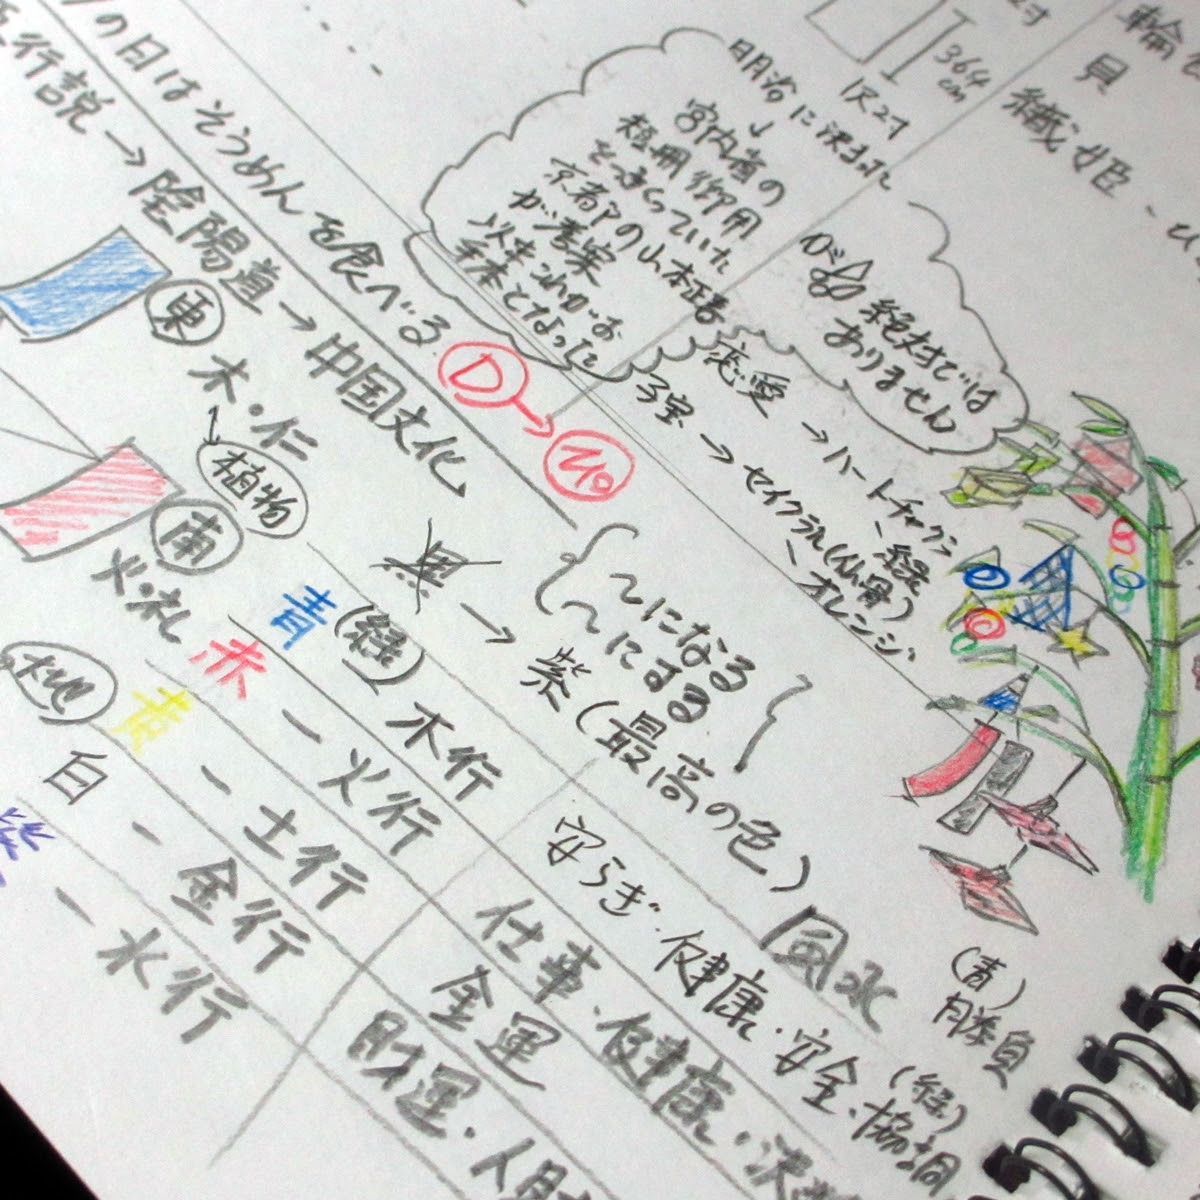 の日はそうめんを食べる
行説→陰陽道→中国文化
D→
明治に決まった
宮内省の
短冊御用
をつくっていた
京都の山本正
が考案
以来これがお
手本となった
絶対では
ありません
尺2寸
364
cm
貝
織姫、
恋愛→ハートチャクラ、緑
子宝→セイクラル(仙骨)、オレンジ、
東
木・仁
植物
南
火・礼
地
黒→紫(最高の色)
~になる
~にまる
青(緑)木行
赤－火行
黄－土行
白－金行
紫－水行
風水
安らぎ・健康・安全・協調
仕事・健康・決
金運
財運・人
(青)
勝負
(緑)